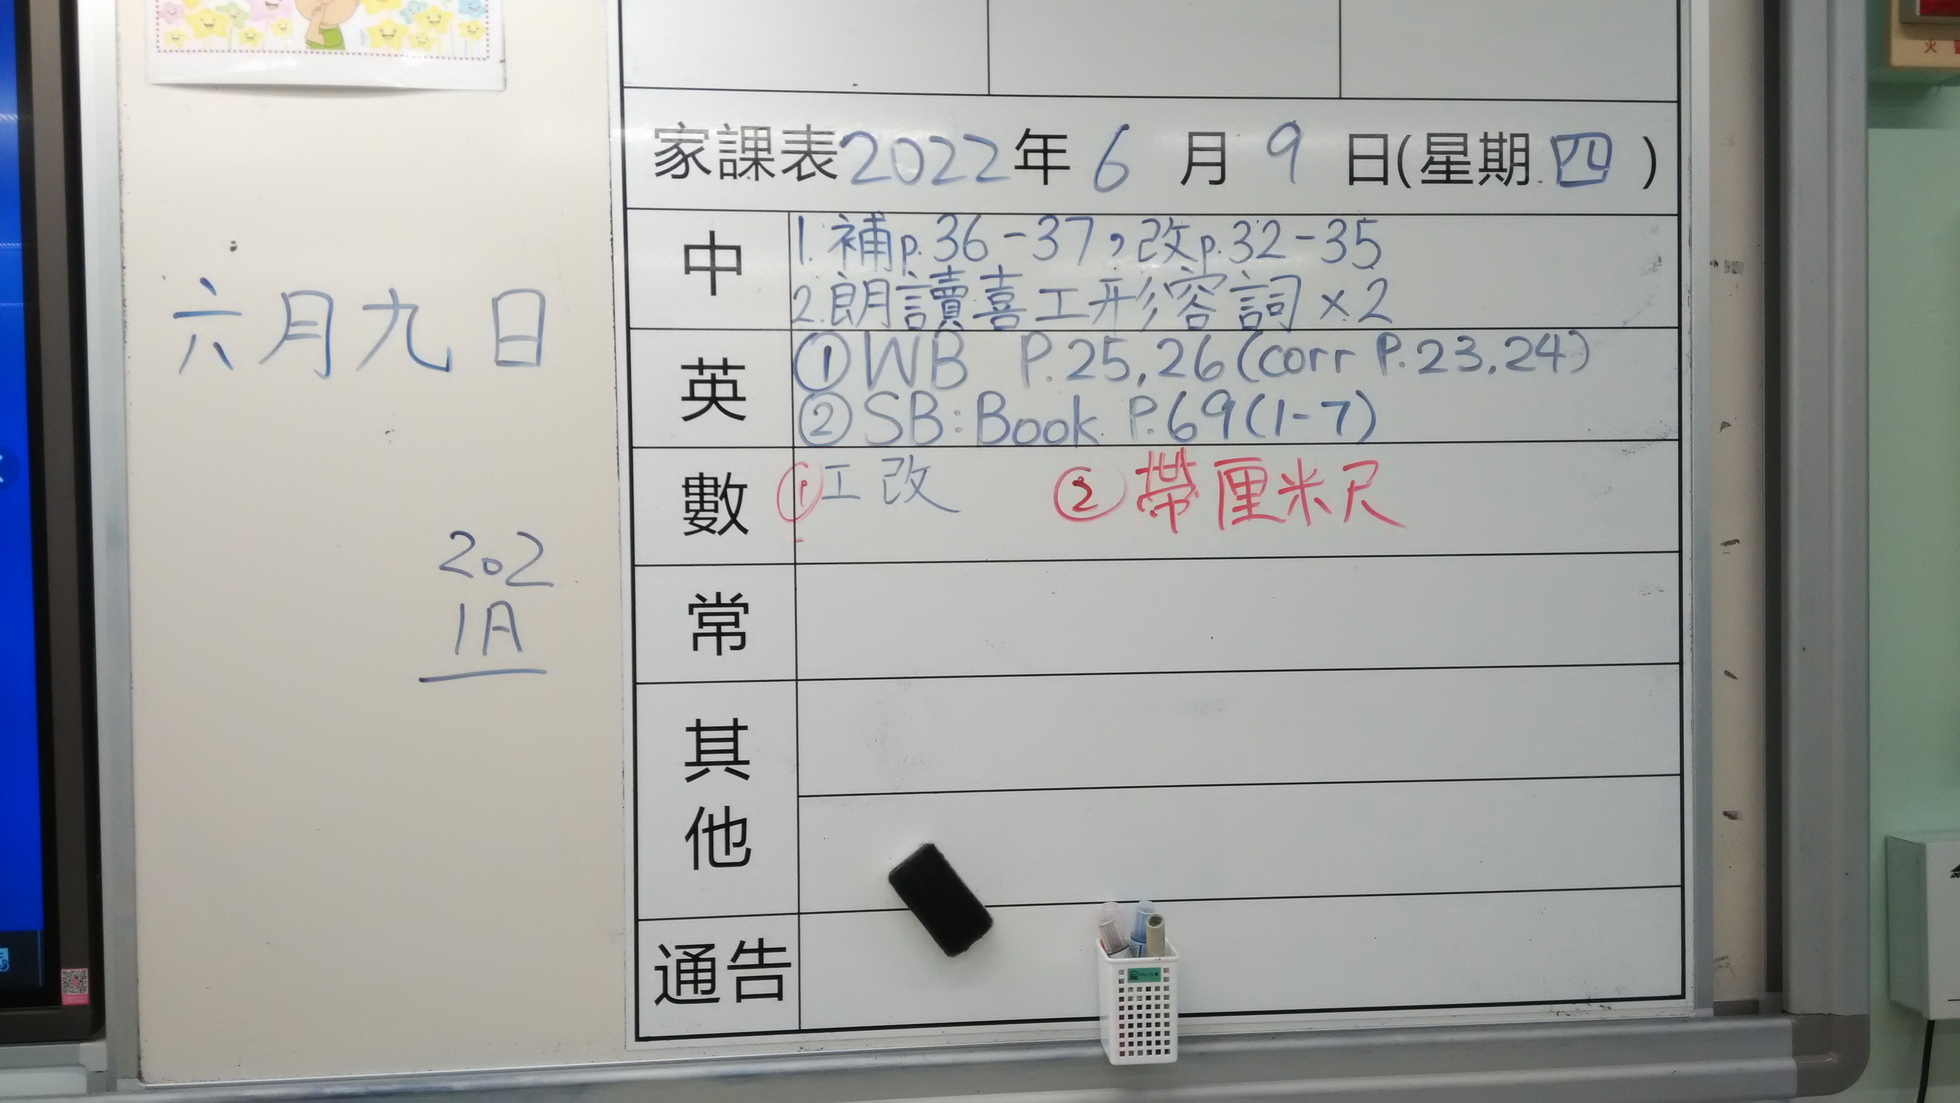 六月九日
202
1A
家課表2022年6月9日(星期四)
中
1.補p.36-37，改p.32-35
2.朗讀喜工形容詞×2
英
①WB P.25,26(corr P.23,24)
②SB:Book P.69(1-7)
數
①工改 ②帶厘米尺
常
其他
通告
火